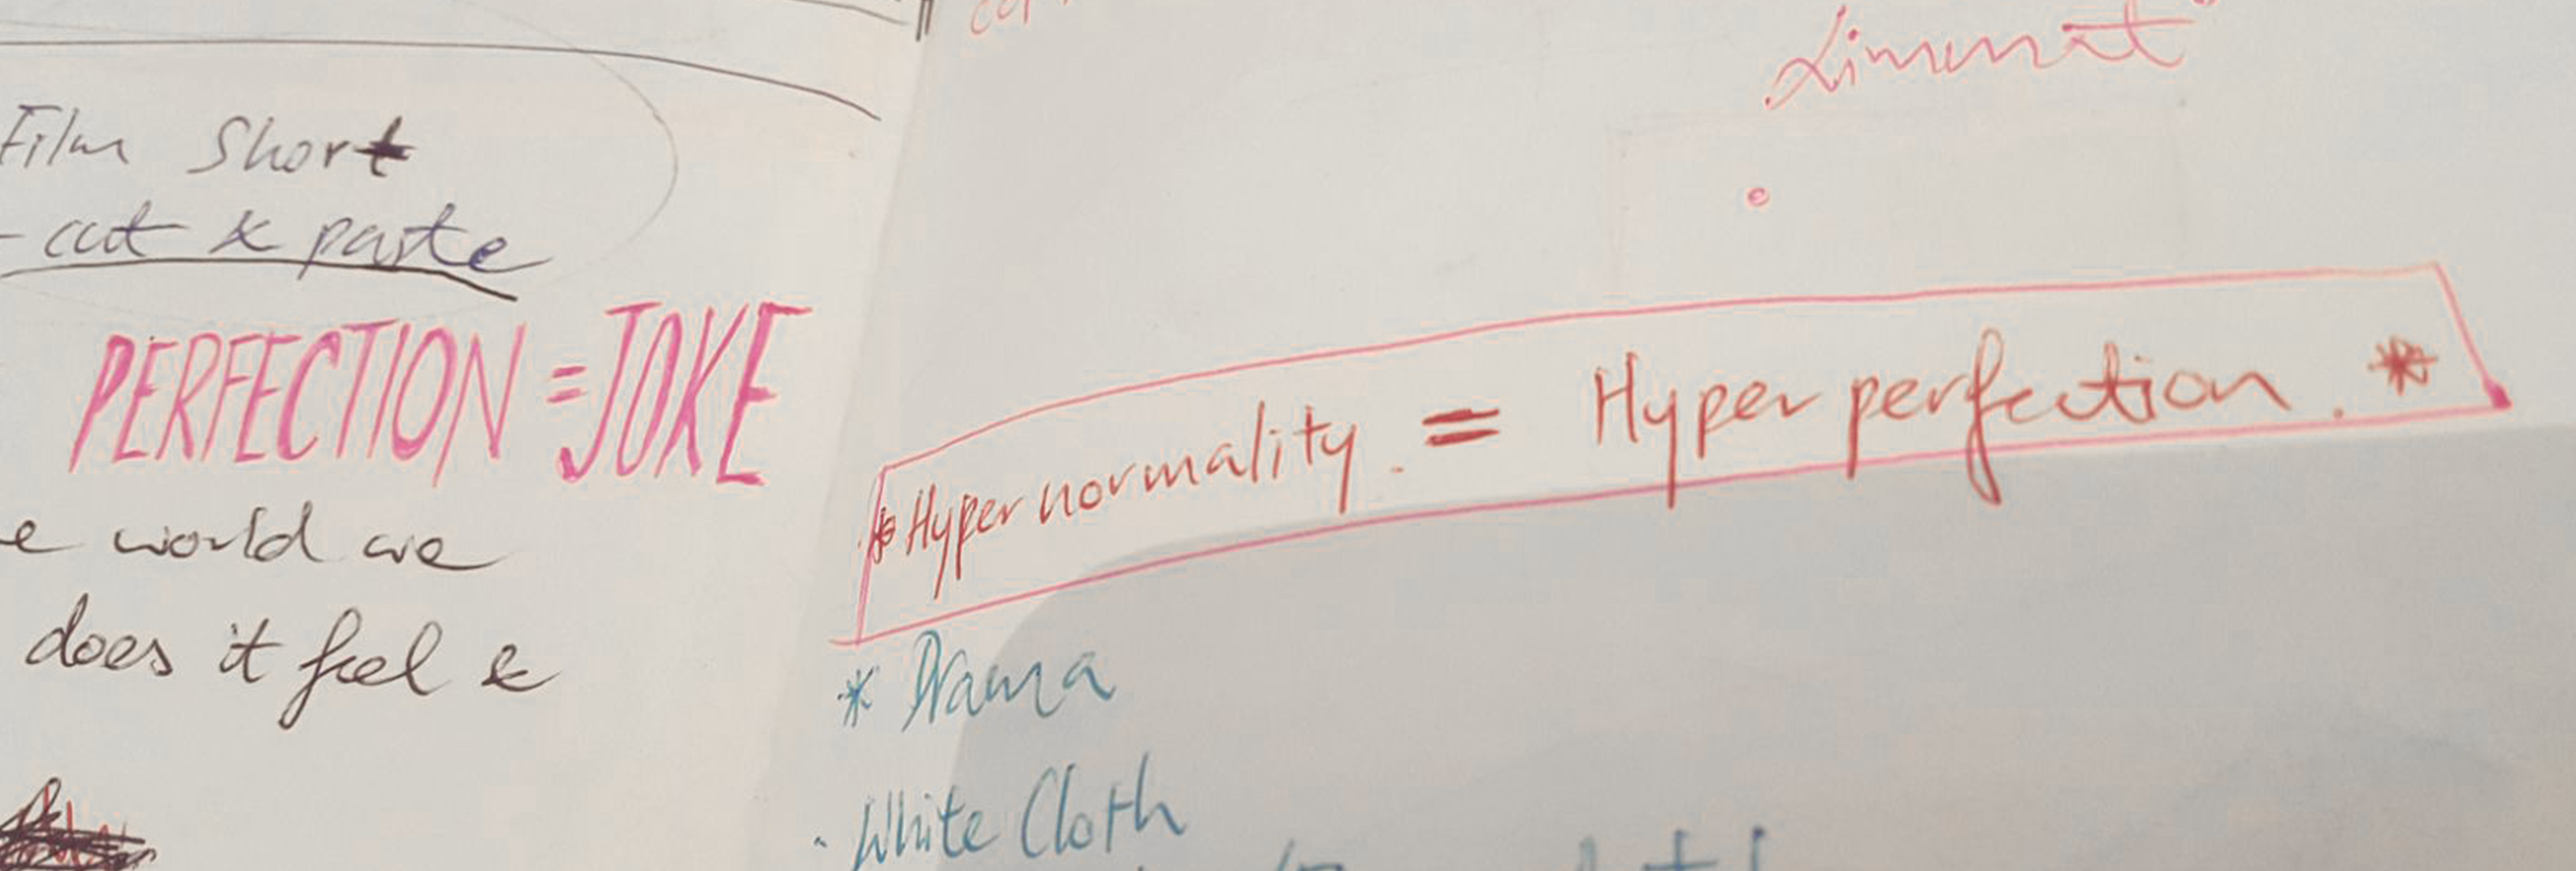 Film Short
- cut & paste
PERFECTION = JOKE
e world we
does it feel &
Limmat
* Hypernormality. = Hyperperfection. *
* Drama
· White Cloth